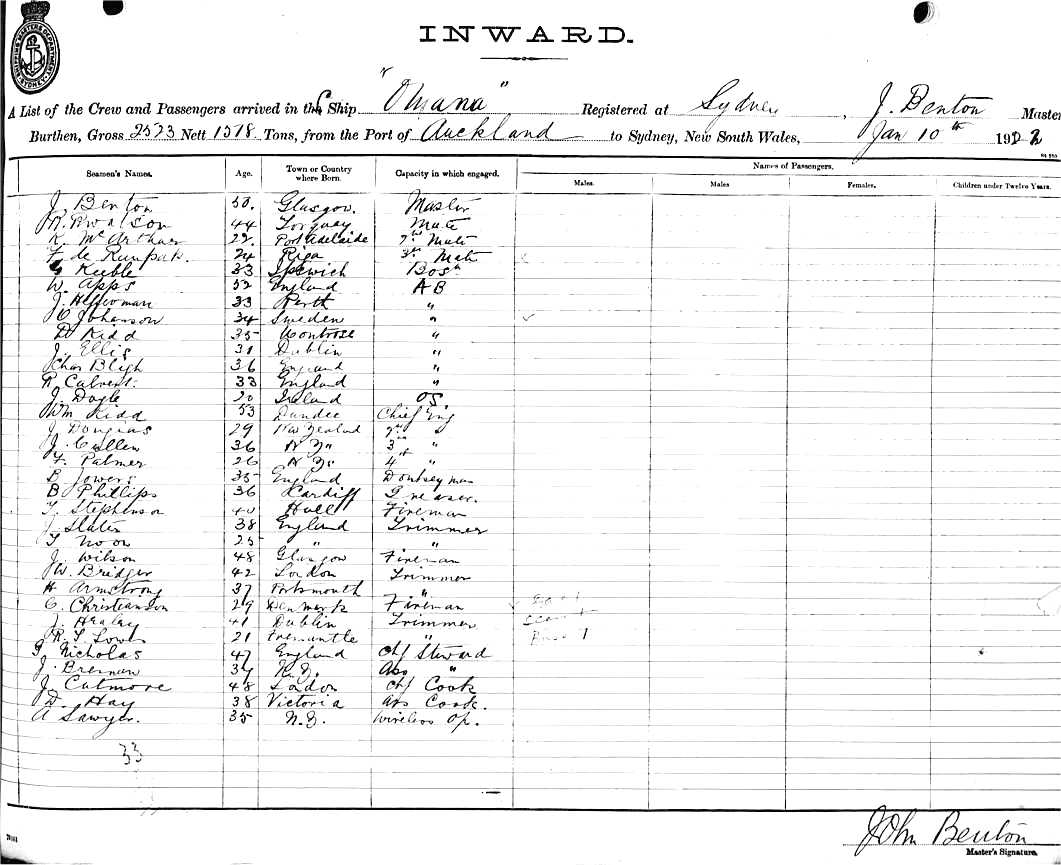 INWARD.
A List of the Crew and Passengers arrived in the Ship "Omana" Registered at Sydney, J. Benton Master
Burthen, Gross 2573 Nett 1518 Tons, from the Port of Auckland to Sydney, New South Wales, Jan 10th 1922
Seamen's Names. Age. Town or Country where Born. Capacity in which engaged. Names of Passengers.
Males. Males Females. Children under Twelve Years.
J. Benton 50. Glasgow. Master
44 Torquay Mate
K. McArthur 22. Port Adelaide 2nd Mate
F. de 24 Riga 3rd Mate
G Keeble 33 Ipswich Bosn
W. Apps 52 England AB
J. 33 Perth "
C Johanson 34 Sweden "
D Kidd 35 Montrose "
J. Ellis 31 Dublin "
Chas Bligh 36 England "
R. Calvert. 33 England "
J. Doyle 20 Ireland OS.
Wm Kidd 53 Dundee Chief Eng
J Douglas 29 New Zealand 2nd "
J. Cullen 36 N Z. 3rd "
F. Palmer 26 N Z. 4th "
B. 35 England Donkeyman
B Phillips 36 Cardiff Greaser.
T. Stephenson 40 Hull Fireman
J. Slater 38 England Trimmer
T Noon 25 " "
J. Wilson 48 Glasgow Fireman
W. Bridger 42 London Trimmer
H Armstrong 37 Portsmouth "
C. Christianson 29 Denmark Fireman
J. Healey 41 Dublin Trimmer
R. T. Lowe 21 Fremantle "
Nicholas 47 England Chf Steward
J. Brennan 34 N.Z. Ass "
J. Catmore 48 London Chf Cook
D. Hay 38 Victoria Ass Cook.
A Sawyer. 35 N.Z. Wireless Op.
33
John Benton
Master's Signature.